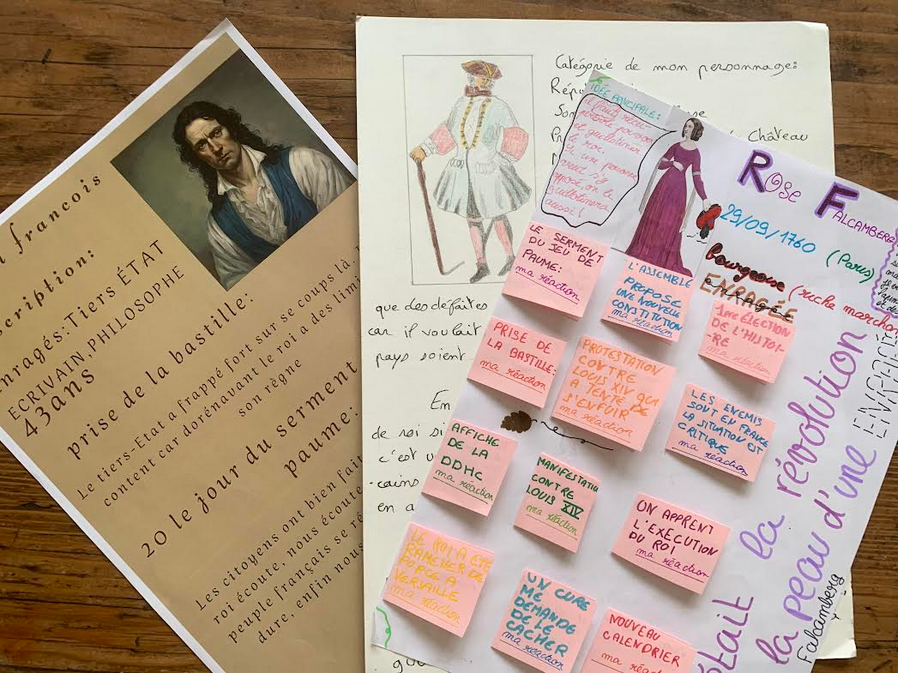 francois
scription:
nragés:Tiers ÉTAT
ECRIVAIN, PHILOSOPHE
43ans
prise de la bastille:
Le tiers-Etat a frappé fort sur se coups là
content car dorénavant le roi a des limi
son règne
20 le jour du serment
paume:
Les citoyens ont bien fait
roi écoute, nous écoute
peuple français se ré
dure, enfin nous
Catégorie de mon personnage:
Château
que des défaites
car il voulait
pays soient
En
de roi si
c'est u
cains
en a
IDÉE PRINCIPALE:
ROSE FALCAMBERG
29/09/1760 (Paris)
bourgeoise (riche marchan
ENRAGÉE
LE SERMENT
DU JEU DE
PAUME:
ma réaction
L'ASSEMBLÉ
PROPOSE
UNE NOUVELLE
CONSTITUTION
ma réaction
1ère ÉLECTION
DE L'HISTOI-
RE
ma réaction
PRISE DE
LA BASTILLE:
ma réaction
PROTESTATION
CONTRE
LOUIS XIV QUI
A TENTÉ DE
S'ENFUIR
ma réaction
LES ENEMIS
SONT EN FRANCE
LA SITUATION EST
CRITIQUE
ma réaction
AFFICHE
DE LA
DDHC
ma réaction
MANIFESTATION
CONTRE
LOUIS XIV
ma réaction
ON APPRENT
L'EXECUTION
DU ROI
ma réaction
LE ROI A ÉTÉ
RAMENER DE
FORCE A
VERSAILLE
ma réaction
UN CURÉ
ME DEMANDE
DE LE
CACHER
ma réaction
NOUVEAU
CALENDRIER
ma réaction
était la révolution
la peau d'une ENRAGÉE
Falcamberg